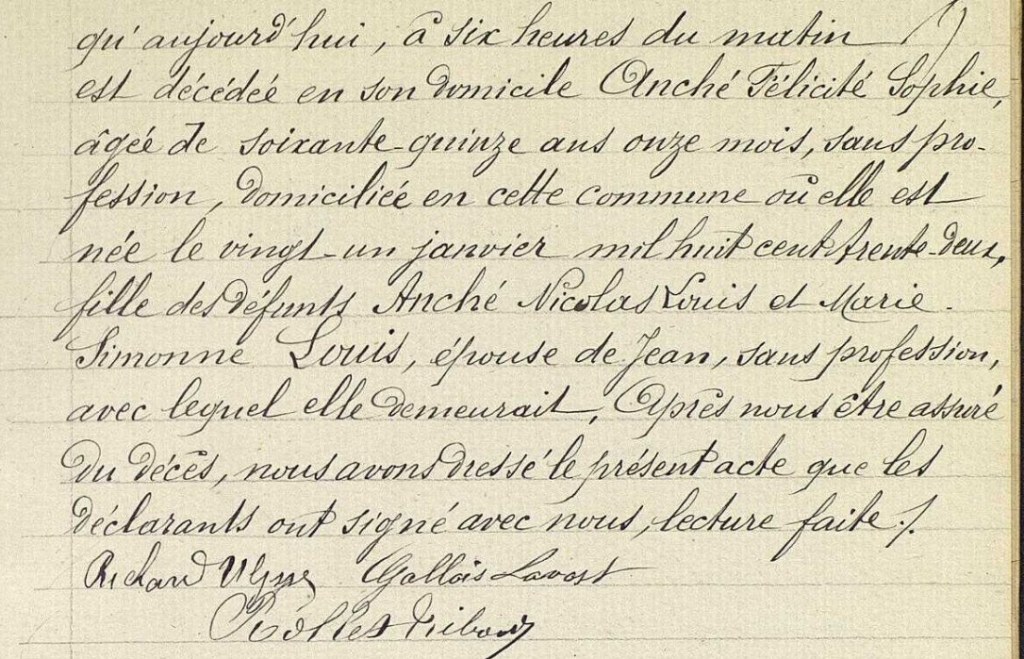 qu'aujourd'hui, à six heures du matin
est décédée en son domicile Anché Félicité Sophie,
âgée de soixante-quinze ans onze mois, sans pro-
fession, domiciliée en cette commune où elle est
née le vingt-un janvier mil huit cent trente-deux,
fille des défunts Anché Nicolas Louis et Marie-
Simonne Louis, épouse de Jean, sans profession,
avec lequel elle demeurait, Après nous être assuré
du décès, nous avons dressé le présent acte que les
déclarants ont signé avec nous, lecture faite ./.
Richard Gallois
Rollet